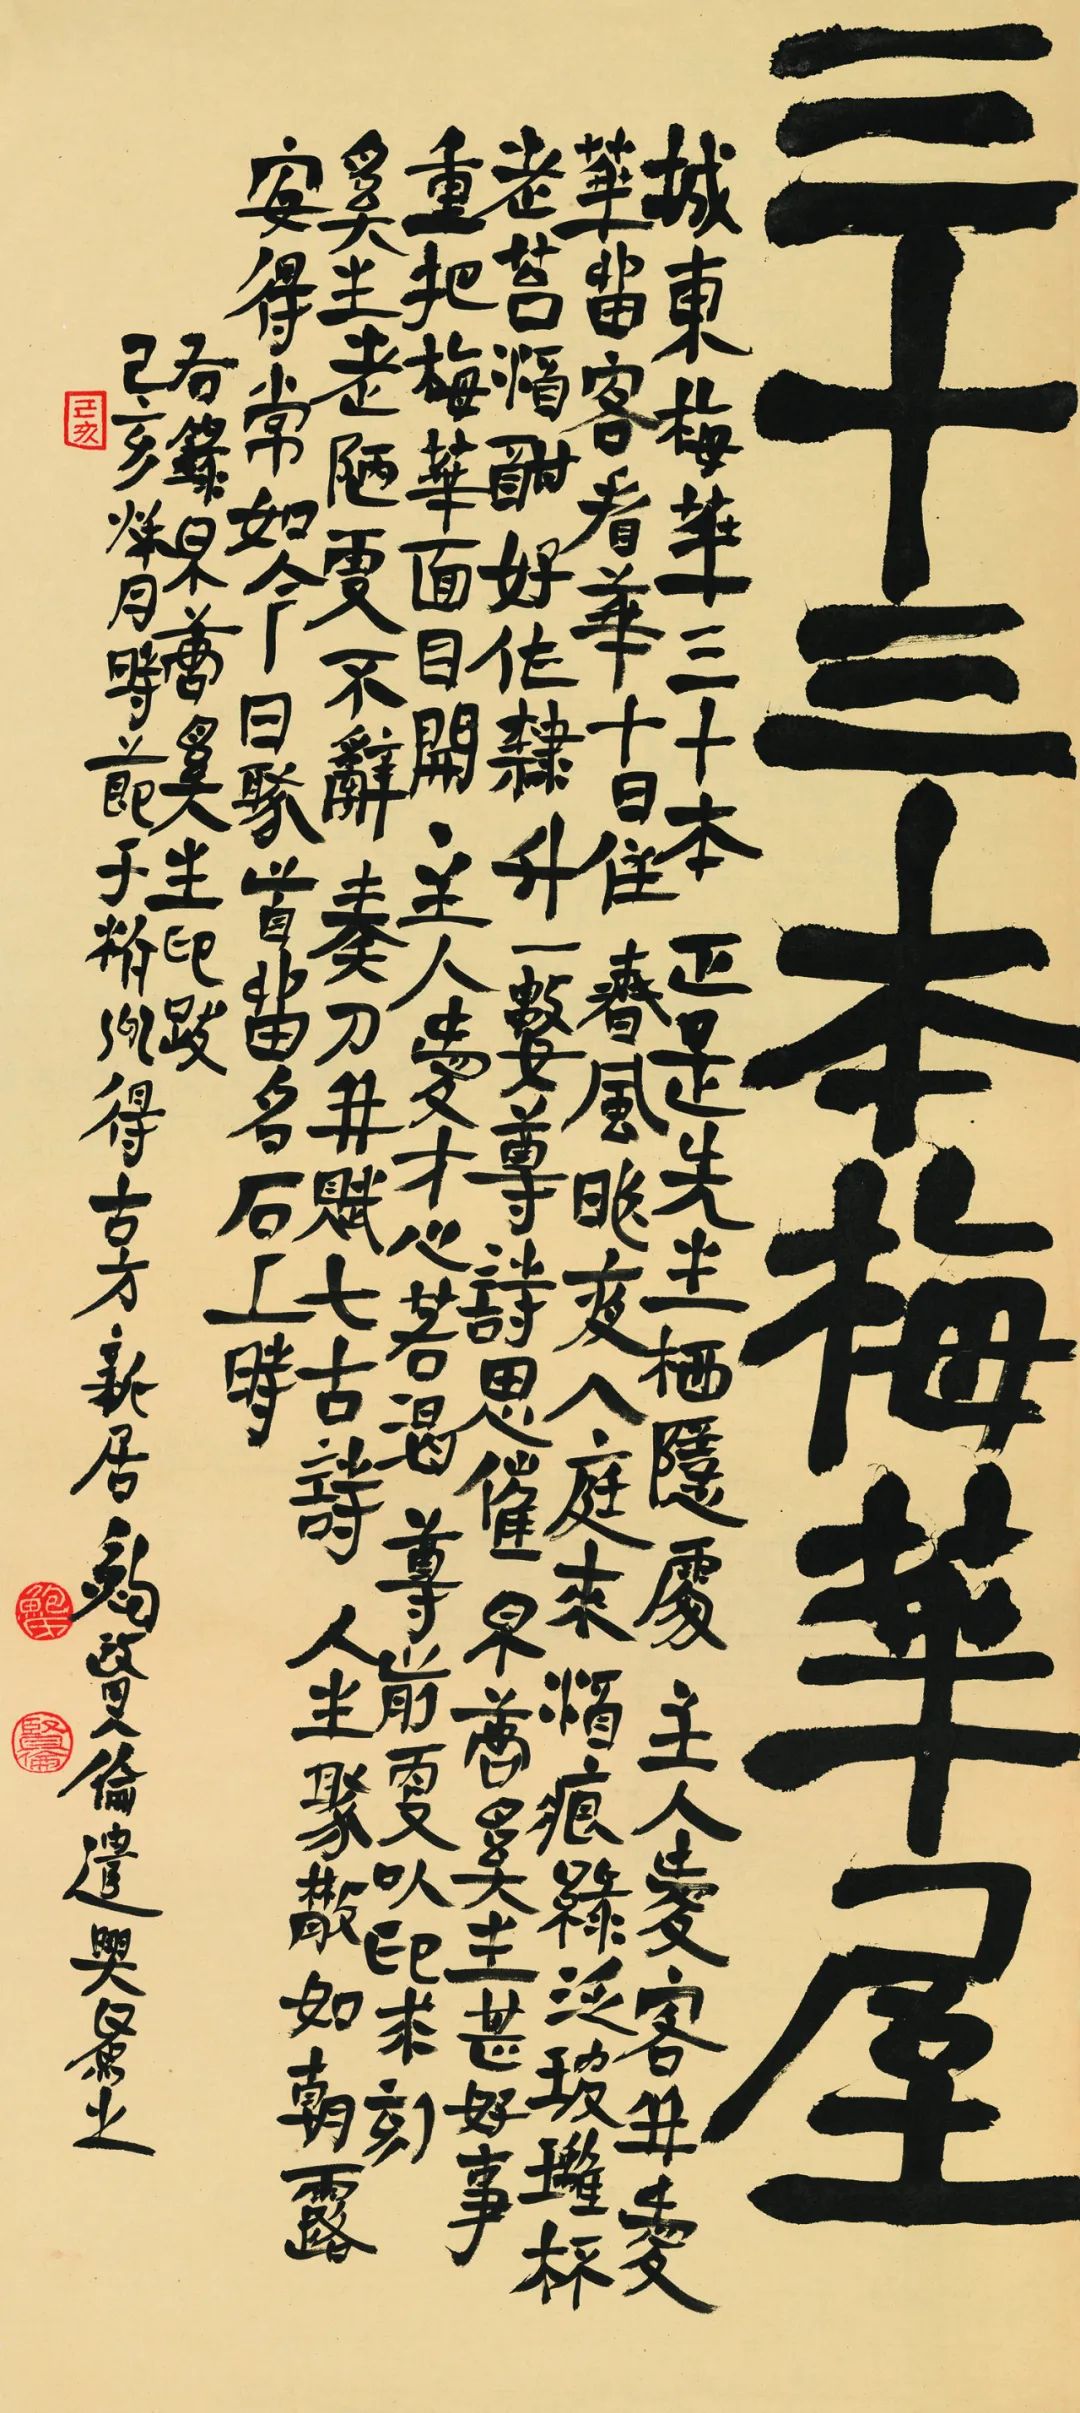 三十三本梅華屋
城東梅華三十本 正是先生栖隱處 主人愛客并愛
華留客看華十日住 春風昨夜入庭來 酒痕綠泛玻瓈杯
老酒酣好作隸 一尊詩思催 奚生甚好事
重把梅華面目開 主人愛才心若渴 尊前更以印求刻
奚生老陋更不辭 奏刀并賦七古詩 人生聚散如朝露
安得常如今日聚首留名石上時
右錄奚生印跋
己亥秋月時節于得古方新居 鮑賢倫遣興書之
己亥
鮑氏
賢倫